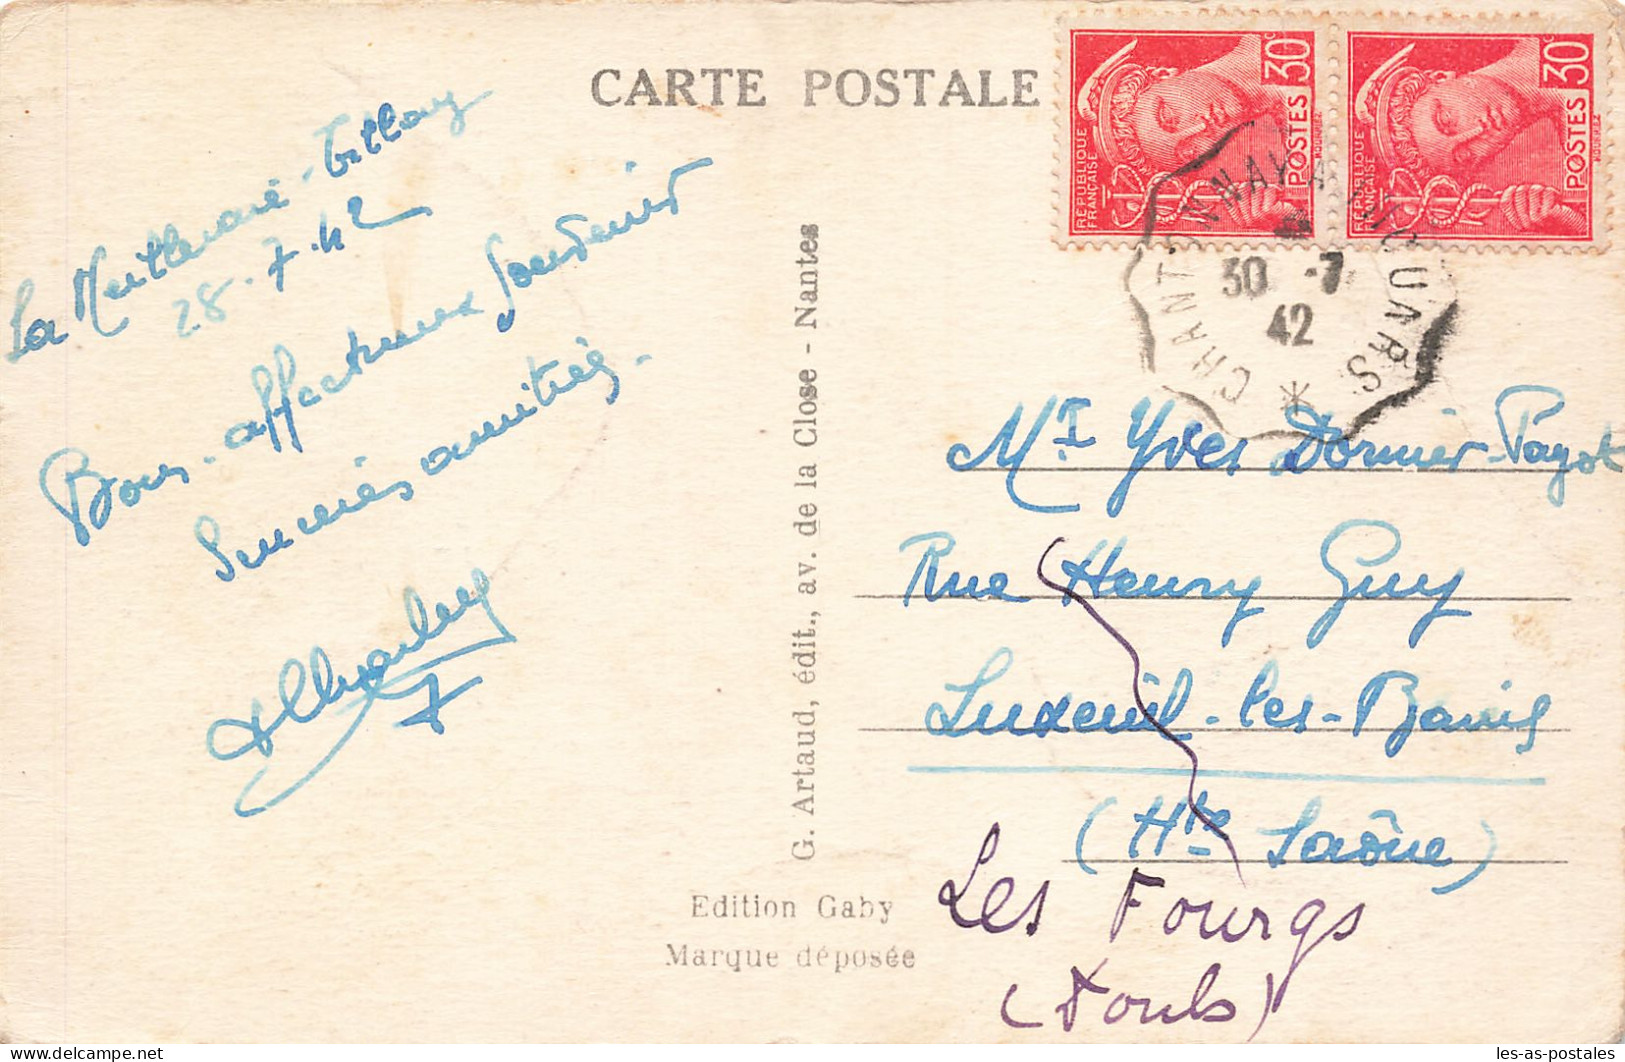 CARTE POSTALE
La Meilleraie-Tillay
28.7.42
Bons affectueux souvenirs
Sincères amitiés.
G. Artaud, édit., av. de la Close - Nantes
Edition Gaby
Marque déposée
30c
POSTES
RÉPUBLIQUE
FRANÇAISE
30c
POSTES
RÉPUBLIQUE
FRANÇAISE
CHANTONNAY A THOUARS
30 -7
42
Mr Yves Dornier-Payot
Rue Henry Guy
Luxeuil-les-Bains
(Hte Saône)
Les Fourgs
(Doubs)
les-as-postales - delcampe.net